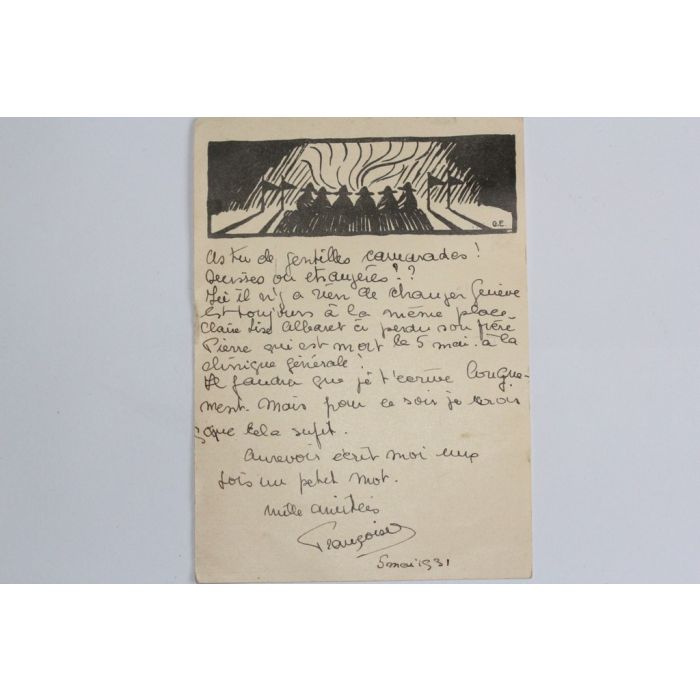 G.E.
as tu de gentilles camarades!
Suisses ou étrangères!??
Ici il n'y a rien de changer Genève
est toujours à la même place.
Claire Lise Albaret à perdu son frère
Pierre qui est mort le 5 mai à la
clinique générale!
Il faudra que je t'écrive longue-
ment. Mais pour ce soir je crois
que cela sufit.
Aurevoir écrit moi une
fois un petit mot.
mille amitiés
Françoise
5 mai 1931